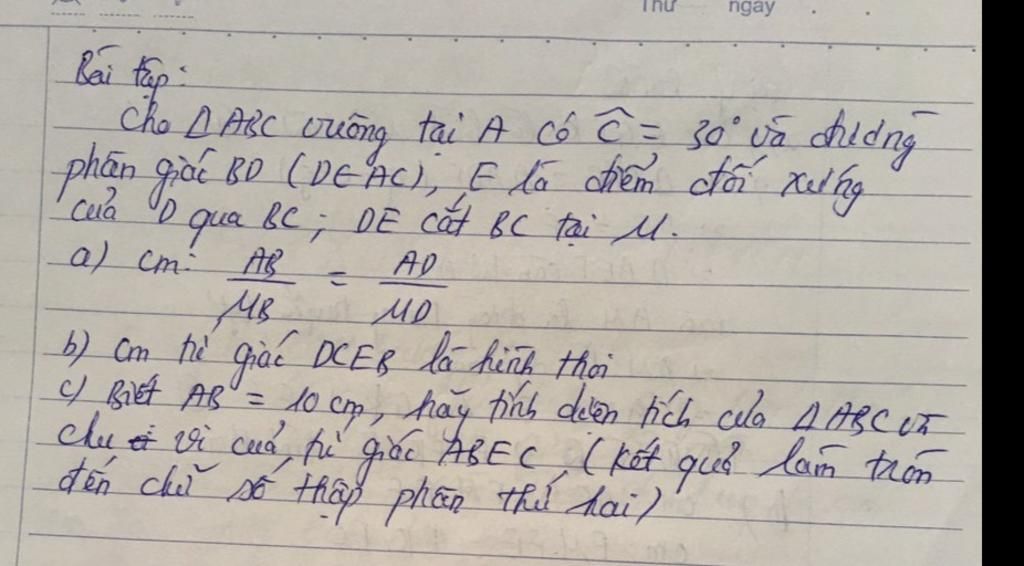 Thứ ngày
Bài tập:
Cho ΔABC vuông tại A có Ĉ = 30° và đường
phân giác BD (D∈AC), E là điểm đối xứng
của D qua BC; DE cắt BC tại M.
a) cm: AB/MB = AD/MD
b) cm tứ giác DCEB là hình thoi
c) Biết AB = 10 cm, hãy tính diện tích của ΔABC và
chu vi của tứ giác ABEC. (kết quả làm tròn
đến chữ số thập phân thứ hai)